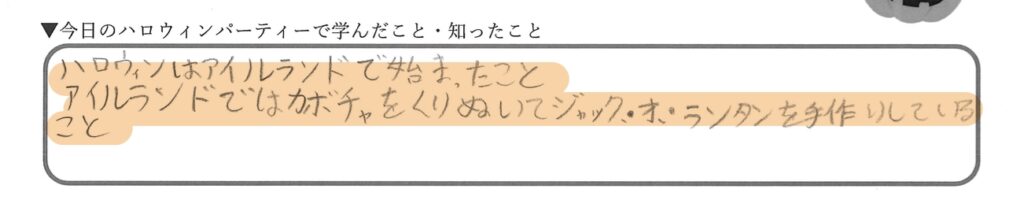 ▼今日のハロウィンパーティーで学んだこと・知ったこと
ハロウィンはアイルランドで始まったこと
アイルランドではカボチャをくりぬいてジャック・オ・ランタンを手作りしている
こと